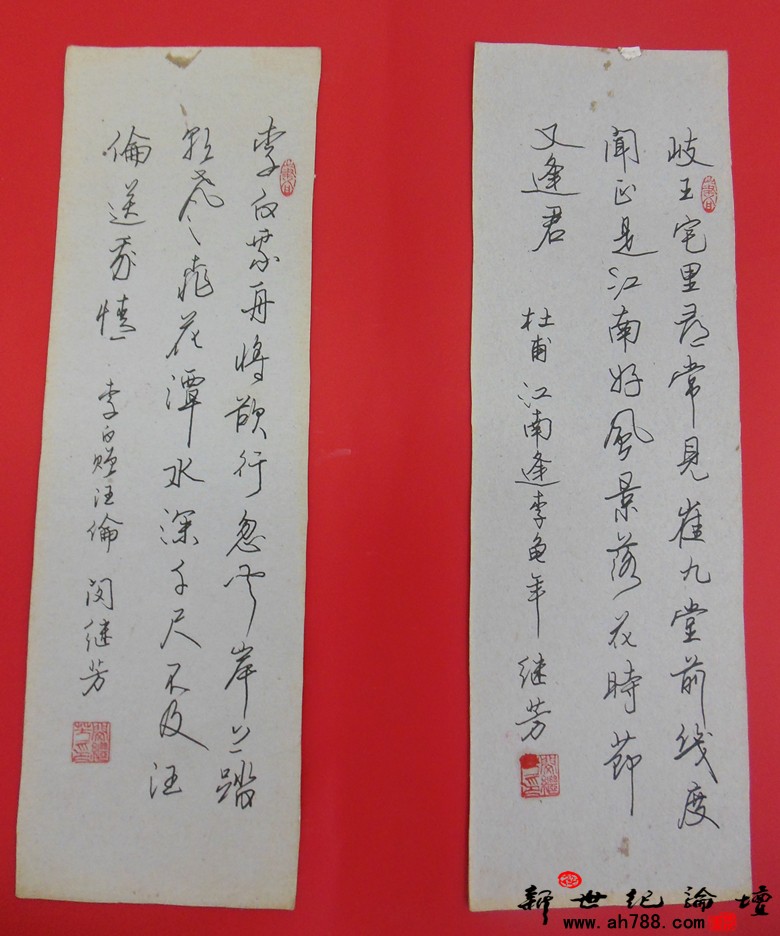 岐王宅里尋常見崔九堂前幾度
聞正是江南好風景落花時節
又逢君
杜甫江南逢李龟年 继芳
李白乘舟将欲行忽闻岸上踏
歌声桃花潭水深千尺不及汪
倫送我情
李白赠汪倫 闵继芳
新世纪論壇
www.ah788.com